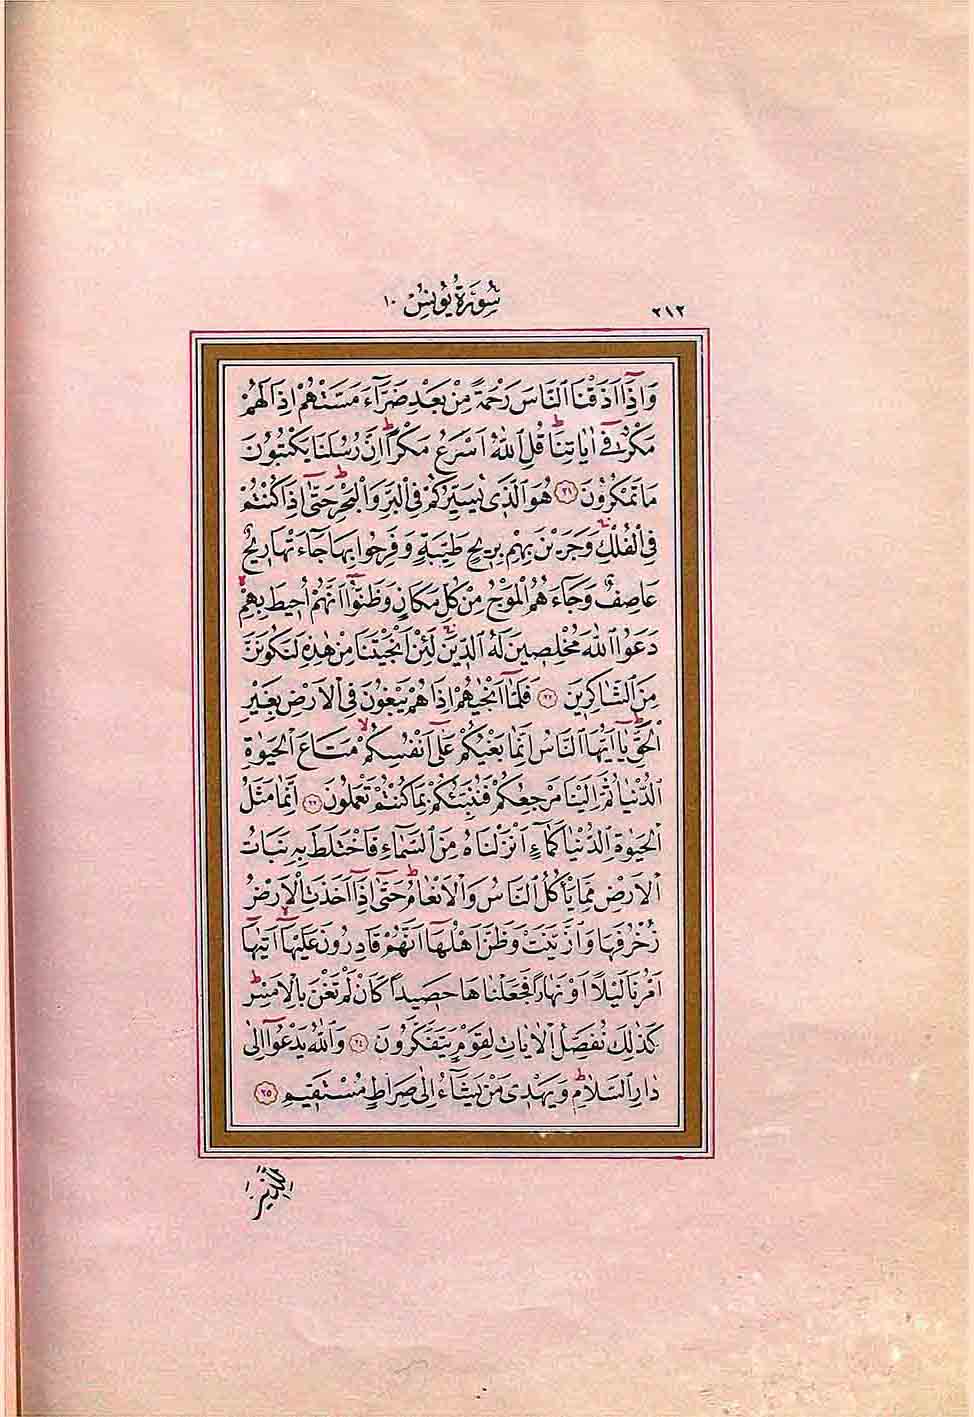 ٢١٢
سُورَةُ يُونُسَ ١٠
وَاِذَٓا اَذَقْنَا النَّاسَ رَحْمَةً مِنْ بَعْدِ ضَرَّٓاءَ مَسَّتْهُمْ اِذَا لَهُمْ
مَكْرٌ فٖٓي اٰيَاتِنَاۜ قُلِ اللّٰهُ اَسْرَعُ مَكْرًاۜ اِنَّ رُسُلَنَا يَكْتُبُونَ
مَا تَمْكُرُونَ ﴿٢١﴾ هُوَ الَّذٖي يُسَيِّرُكُمْ فِي الْبَرِّ وَالْبَحْرِۜ حَتّٰٓى اِذَا كُنْتُمْ
فِي الْفُلْكِۚ وَجَرَيْنَ بِهِمْ بِرٖيحٍ طَيِّبَةٍ وَفَرِحُوا بِهَا جَٓاءَتْهَا رٖيحٌ
عَاصِفٌ وَجَٓاءَهُمُ الْمَوْجُ مِنْ كُلِّ مَكَانٍ وَظَنُّٓوا اَنَّهُمْ اُحٖيطَ بِهِمْۙ
دَعَوُا اللّٰهَ مُخْلِصٖينَ لَهُ الدّٖينَۚ لَئِنْ اَنْجَيْتَنَا مِنْ هٰذِهٖ لَنَكُونَنَّ
مِنَ الشَّاكِرٖينَ ﴿٢٢﴾ فَلَمَّٓا اَنْجٰيهُمْ اِذَا هُمْ يَبْغُونَ فِي الْاَرْضِ بِغَيْرِ
الْحَقِّۜ يَٓا اَيُّهَا النَّاسُ اِنَّمَا بَغْيُكُمْ عَلٰٓى اَنْفُسِكُمْۙ مَتَاعَ الْحَيٰوةِ
الدُّنْيَا ثُمَّ اِلَيْنَا مَرْجِعُكُمْ فَنُنَبِّئُكُمْ بِمَا كُنْتُمْ تَعْمَلُونَ ﴿٢٣﴾ اِنَّمَا مَثَلُ
الْحَيٰوةِ الدُّنْيَا كَمَٓاءٍ اَنْزَلْنَاهُ مِنَ السَّمَٓاءِ فَاخْتَلَطَ بِهٖ نَبَاتُ
الْاَرْضِ مِمَّا يَأْكُلُ النَّاسُ وَالْاَنْعَامُۜ حَتّٰٓى اِذَٓا اَخَذَتِ الْاَرْضُ
زُخْرُفَهَا وَازَّيَّنَتْ وَظَنَّ اَهْلُهَٓا اَنَّهُمْ قَادِرُونَ عَلَيْهَٓاۙ اَتٰيهَٓا
اَمْرُنَا لَيْلًا اَوْ نَهَارًا فَجَعَلْنَاهَا حَصٖيدًا كَاَنْ لَمْ تَغْنَ بِالْاَمْسِۜ
كَذٰلِكَ نُفَصِّلُ الْاٰيَاتِ لِقَوْمٍ يَتَفَكَّرُونَ ﴿٢٤﴾ وَاللّٰهُ يَدْعُٓوا اِلٰى
دَارِ السَّلَامِۜ وَيَهْدٖي مَنْ يَشَٓاءُ اِلٰى صِرَاطٍ مُسْتَقٖيمٍ ﴿٢٥﴾
لِلَّذٖينَ